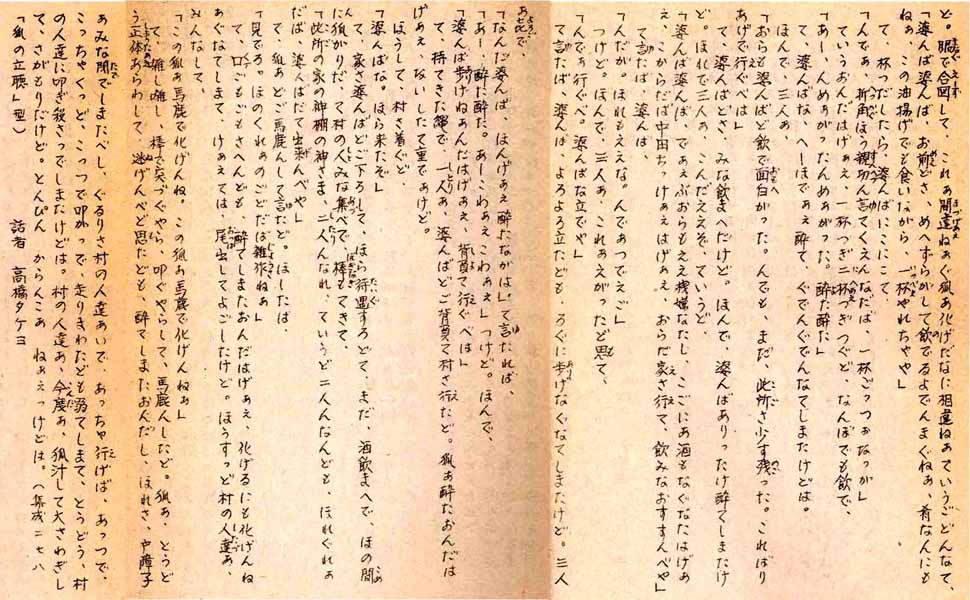 ど。眼で合図して、これぁ間違ねぁぐ狐ぁ化げだなに相違ねぁていうごどんなて、
「婆んば婆んば、お前どさ、めへずらがして飲でるよでんまぐねぁ、肴なんにも
ねぁ、この油揚げでも食いながら一杯やれちゃや」
て、杯つだしたら、婆んばにこにこて、
「んでぁ、折角ほう親切ん言てくえんなだば、一杯ごっつぉなっが」
ていうおんだはげぁえ、一杯つぎ二杯つぎつぐど、なんぼでも飲で、
「あー、んめぁがったんめぁがった。酔た酔た」
て、婆んばな、へーほであぁえ酔て、ぐでんぐでんなてしまたけどは。
ほんで、三人ぁ、
「おらも婆んばど飲で面白がった。んでも、まだ、此所さ少す残った。こればり
あげで行ぐべは」
ど。ほれで三人ぁ、こんだええぞ、ていうど、
て、みな飲まへだけど。ほんで、婆んばありったけ酔てしまたけ
「婆んば婆んば、でぁえぶおらもええ機嫌なたし、ここにあ酒もなぐなたはげぁ
え、これからだば中田ちっけぁぇはげぁえ、おらだ家さ行て、飲みなおすすんべや」
て言たば、婆んばは、
「んでぁ行ぐべ。婆んばな立でや」
て言たば、婆んば、よろよろ立たども、ろぐに歩げなぐなてしまたけど。三人
つけど。ほんで、三人ぁ、これぁえがったど思て、
「んだが。ほれもええな。んであつでえご」
「なんだ婆んば、ほんげぁえ酔たなが[は]」て言たれば、
「あー、酔た酔た。あーこわぁえこわぁえ」つけど。ほんで、
「婆んば歩げねぁんだはげぁえ、背負て行ぐべは」
て、持てきた縄で、一人ぁ、婆んばどご背負て村さ行たど。狐ぁ酔たおんだは
げぁえ、ないしたて重でぁけど。
ほうして、村さ着ぐど、
「婆んばな。ほら来たぞ」
て、家さ婆んばどご下ろして、ほら待遇すろどて、まだ、酒飲まへで、ほの間
に狐がりだ、て村の人みな集べで棒もてきて、
「此所の家の神棚の神さま、二人んなれ、ていうど二人んなんども、ほれぐれぁ
だば、婆んばだて出来んべや」
て、狐ぁどご馬鹿んして言たど。ほしたば、
「見でろ。ほのくれぁのごどだば雑作ねぁ」
て、口ごもごもさへんども、酔てしまたおんだはげぁえ、化げるにも化げんね
ぁぐなてしまて、けぁえては、尾出してよごしたけど。ほうすっど村の人達ぁ、
みんなして、
「この狐ぁ馬鹿で化げんね。この狐ぁ馬鹿で化げんねぁ」
て、囃し囃し、棒で突つぐやら、叩ぐやらして、馬鹿んしたど。狐ぁ、とうど
う正体あらわして、逃げんべど思たども、酔てしまたおんだし、ほれさ、戸障子
ぁみな閉でしまたべし、ぐるりさ村の人達ぁいで、あっちゃ行げば、あっつで、
こっちゃくっど、こっつで叩かっで、走りまわたども弱てしまて、とうどう、村
の人達に叩ぎ殺さっでしまたけどは。村の人達ぁ、今度ぁ、狐汁して大さわぎし
て、さがもりだけど。とんぴんからんこあねぁえっけどは。(集成二七八
「狐の立聴」型)　話者　高橋タケヨ